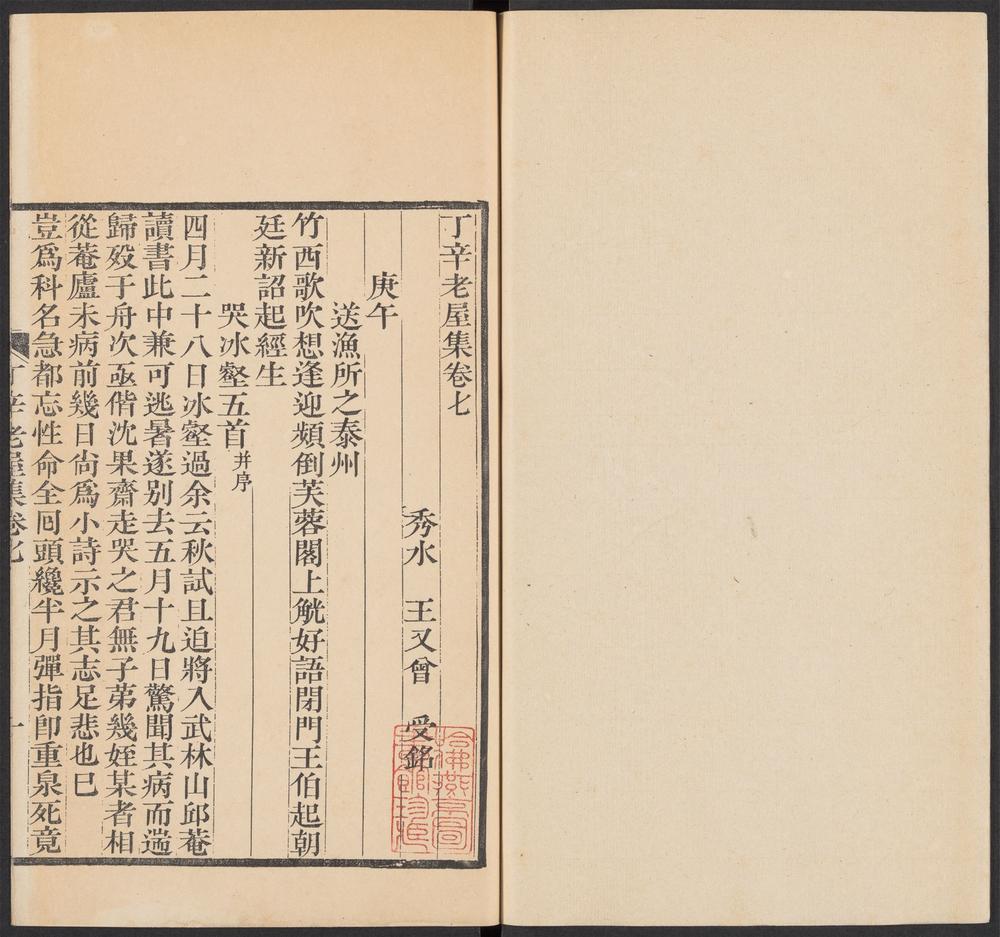 丁辛老屋集卷七
秀水　王又曾　受銘
庚午
送漁所之泰州
竹西歌吹想逢迎頻倒芙蓉閣上觥好語閉門王伯起朝
廷新詔起經生
哭冰壑五首并序
四月二十八日冰壑過余云秋試且迫將入武林山邱菴
讀書此中兼可逃暑遂別去五月十九日驚聞其病而遄
歸歿于舟次亟偕沈果齋走哭之君無子苐幾姪某者相
從菴廬未病前幾日尙爲小詩示之其志足悲也巳
豈爲科名急都忘性命全囘頭纔半月彈指卽重泉死竟
丁辛老屋集卷七
一
哈佛燕京圖
書館珍藏